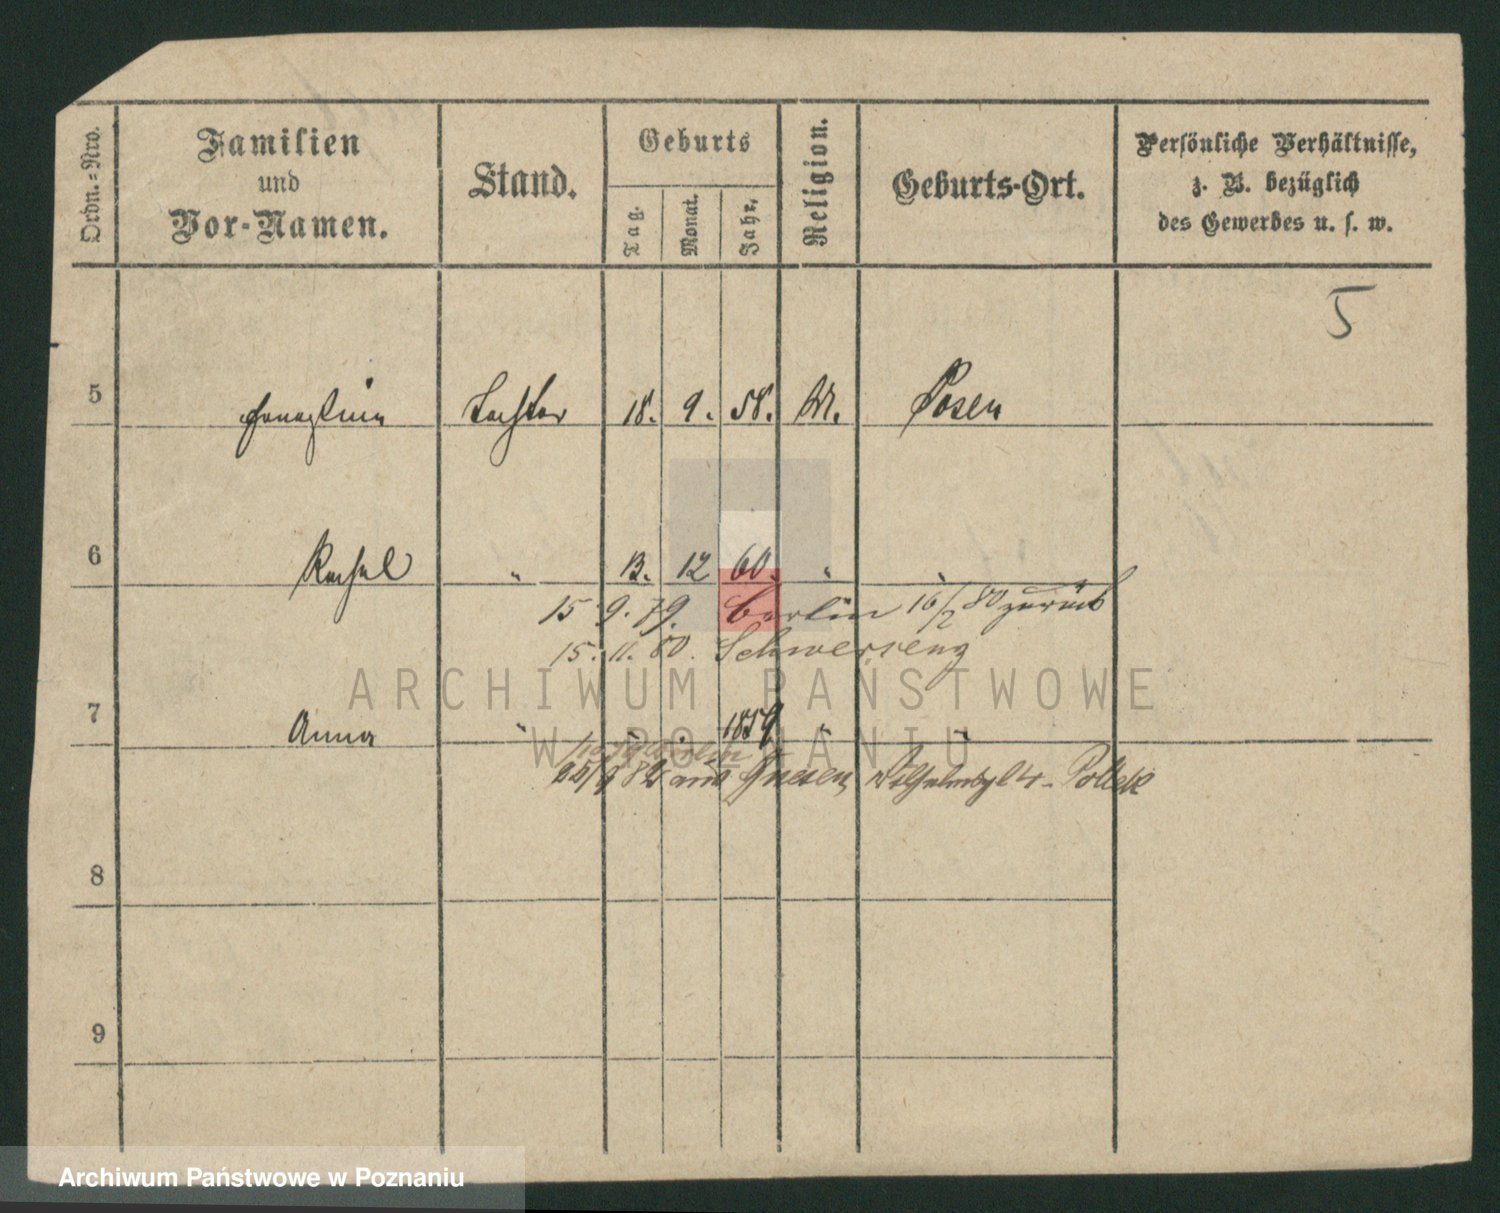 Ordn.=Nro.
Familien
und
Vor-Namen.
Stand.
Geburts
Tag.
Monat.
Jahr.
Religion.
Geburts-Ort.
Persönliche Verhältnisse,
z. B. bezüglich
des Gewerbes u. s. w.
5
5 Tochter 18. 9. 58. M. Posen
6 Rachel " 13. 12 60. " "
15. 9. 79. Berlin 16/2 80 zurück
15. 11. 80. Schwersenz
ARCHIWUM PAŃSTWOWE
W POZNANIU
7 Anna " " " 1859 " "
25/9 82 aus Gnesen
8
9
Archiwum Państwowe w Poznaniu